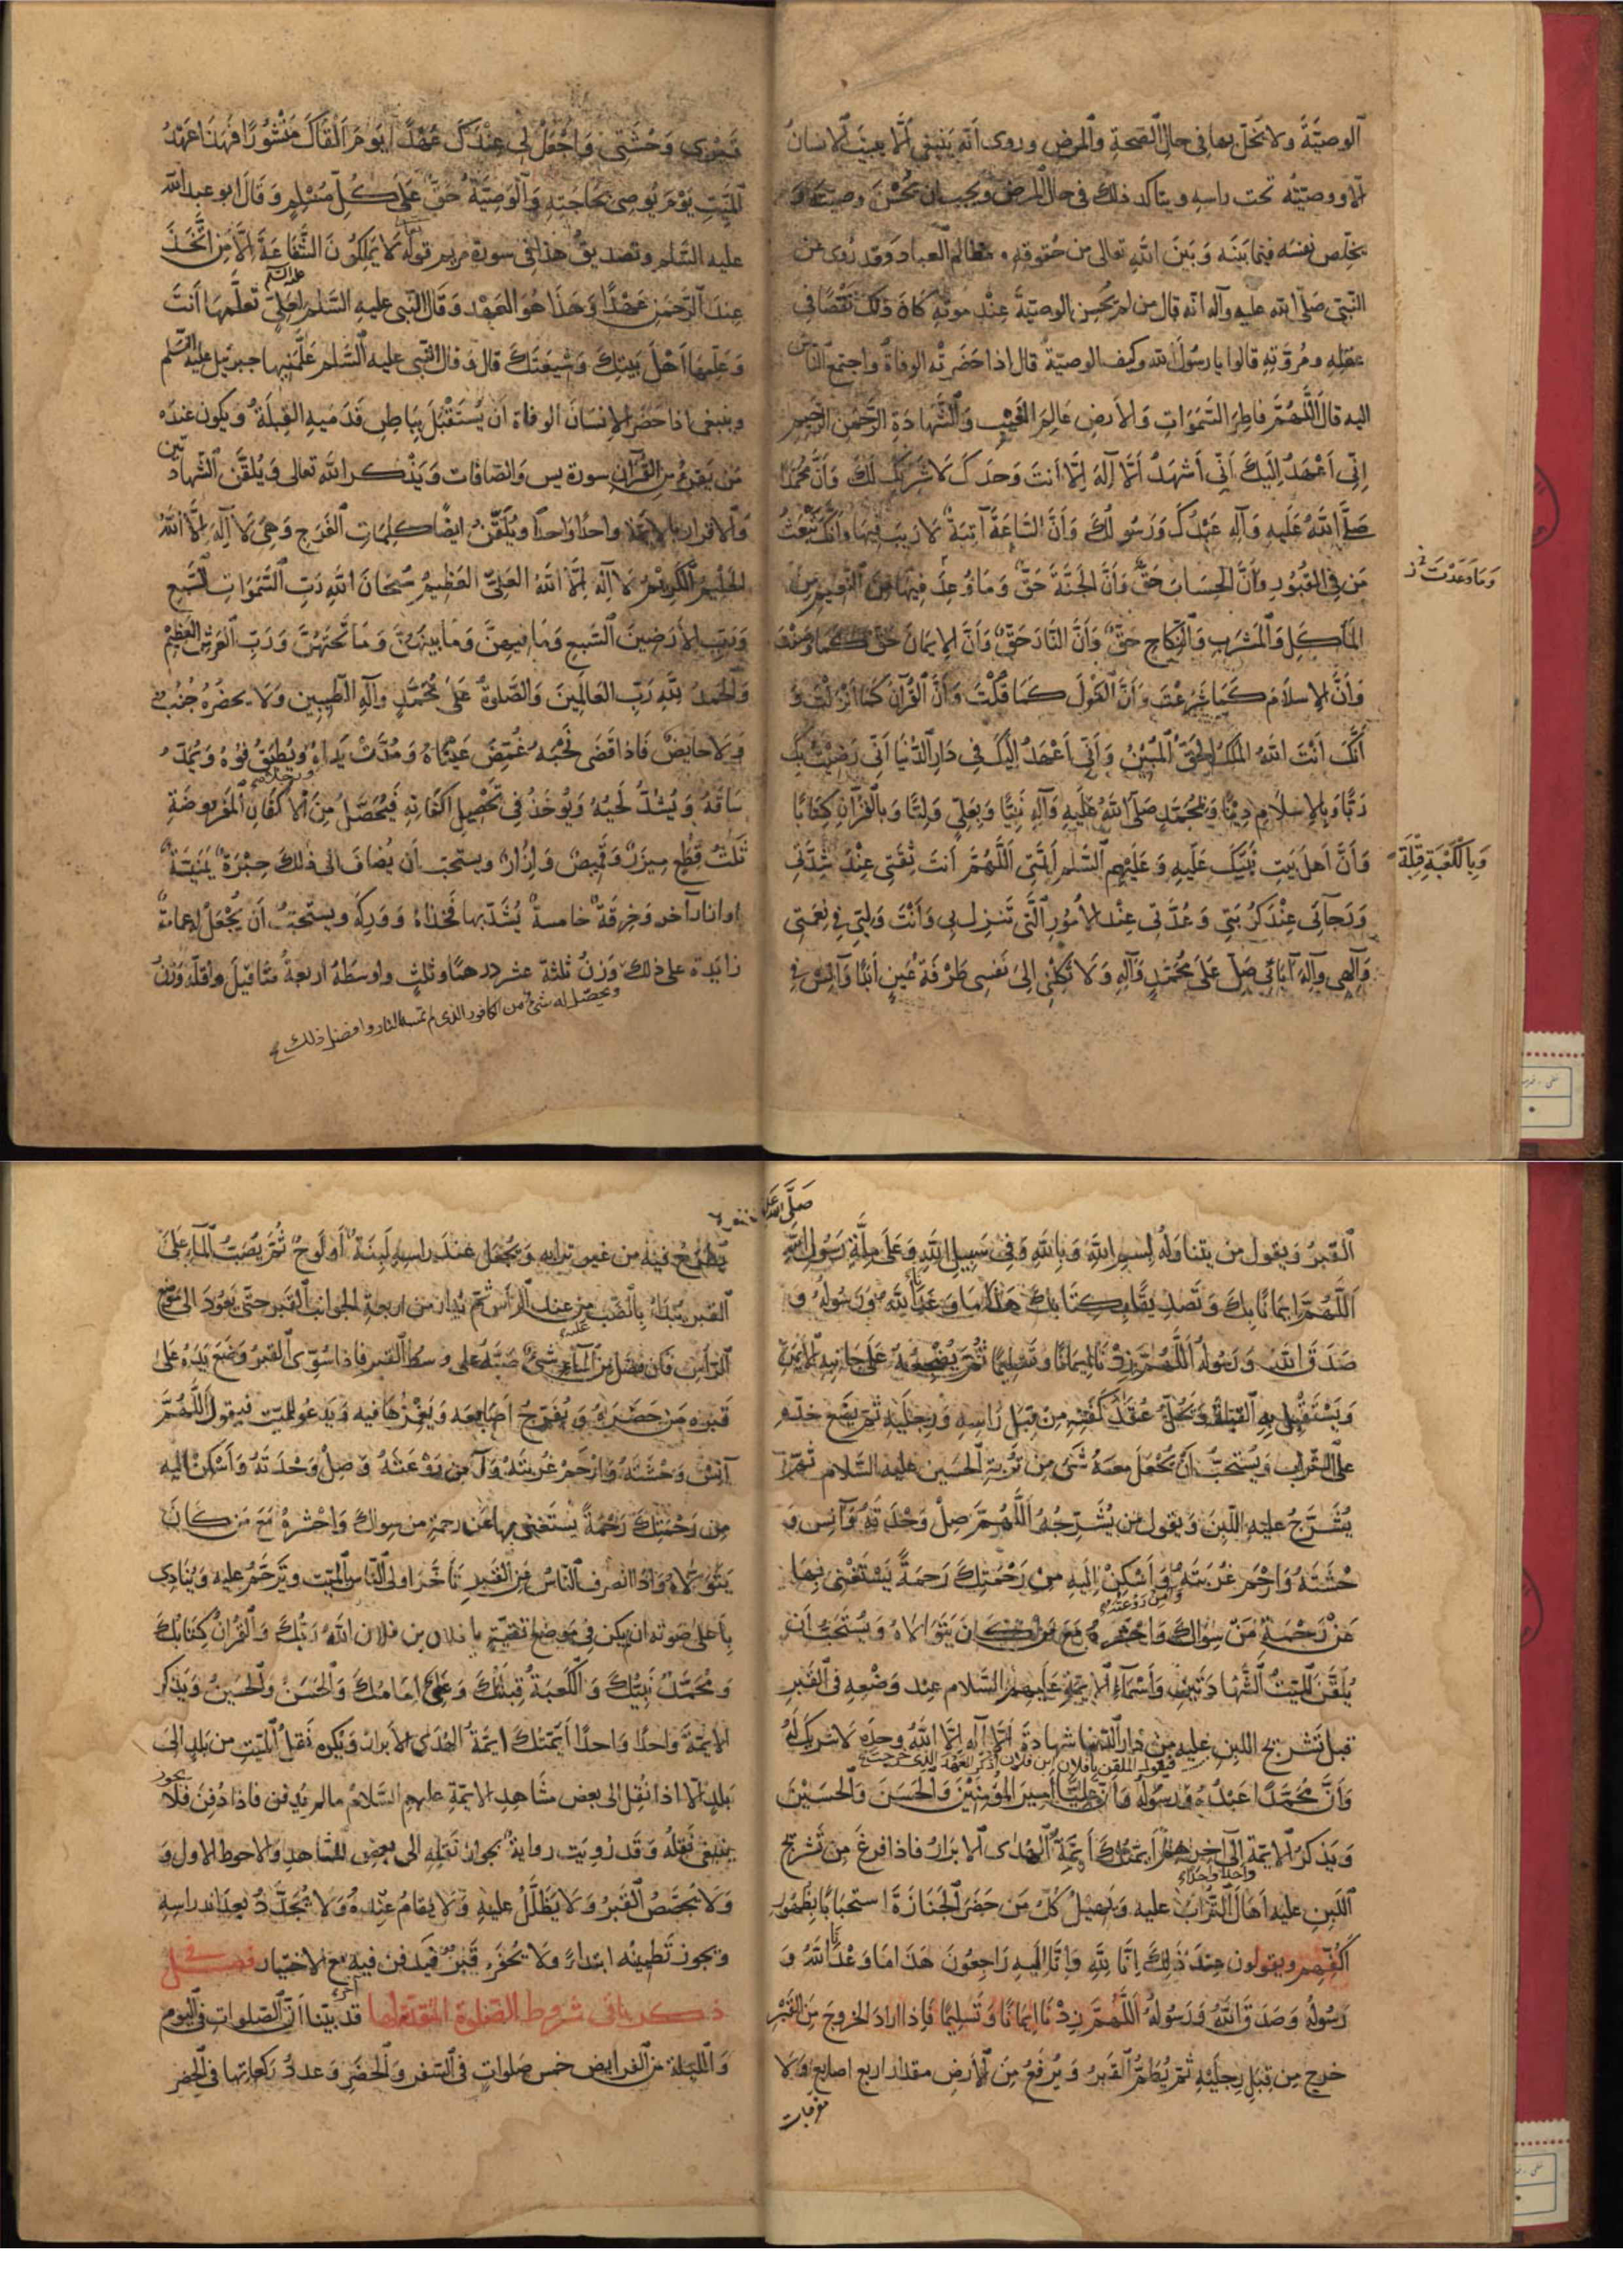 الوصيّة ولا يخلّ بها في حال الصحة والمرض وروى أنّه ينبغي ألّا يبيت الإنسان
إلّا ووصيّته تحت راسه ويتأكد ذلك في حال المرض ويجب ان يحسن وصيته و
يخلّص نفسه فيما بينه وبين الله تعالى من حقوقه ومظالم العباد وقد روى عن
النبي صلّى الله عليه وآله انّه قال من لم يحسن الوصيّة عند موته كان ذلك نقصًا في
عقله ومروّته قالوا يا رسول الله وكيف الوصيّة قال اذا حضرته الوفاة واجتمع الناس
اليه قال اللّهمّ فاطر السّموات والأرض عالم الغيب والشّهادة الرّحمن الرّحيم
إنّي أعهد إليك أنّي أشهد ألّا آله إلّا أنت وحدك لا شريك لك وأنّ محمّدًا
صلّى الله عليه وآله عبدك ورسولك وأنّ السّاعة آتية لا ريب فيها وأنّك تبعث
من في القبور وأنّ الحساب حقّ وأنّ الجنّة حقّ وما وعد فيها من النّعيم من
وما وعدت
المأكل والمشرب والنّكاح حقّ وأنّ النّار حقّ وأنّ الإيمان حقّ كما وصف
وأنّ الإسلام كما شرعت وأنّ القول كما قلت وأنّ القرآن كما انزلت و
أنّك أنت الله الملك الحقّ المبين وأنّي أعهد إليك في دار الدّنيا أنّي رضيت بك
ربًّا وبالإسلام دينًا وبمحمّد صلّى الله عليه وآله نبيًّا وبعليّ وليًّا وبالقرآن كتابًا
وبالكعبة قبلة
وأنّ أهل بيت نبيّك عليه وعليهم السّلم أئمّتي اللّهمّ أنت ثقتي عند شدّتي
ورجآئي عند كربتي وعدّتي عند الأمور الّتي تنزل بي وأنت وليّي في نعمتي
وآلهي وآله آبائي صلّ على محمّد وآله ولا تكلني إلى نفسي طرفة عين أبدًا وآنس في
قبري وحشتي واجعل لي عندك عهدًا يوم ألقاك منشورًا فهذا عهد
الميّت يوم يوصي بحاجته والوصيّة حقّ على كلّ مسلم وقال ابو عبد الله
عليه السّلم وتصديق هذا في سورة مريم قوله لا يملكون الشّفاعة إلّا من اتّخذ
عند الرّحمن عهدًا وهذا هو العهد وقال النّبي عليه السّلم لعليّ تعلّمها أنت
وعلّمها أهل بيتك وشيعتك قال وقال النّبي عليه السّلم علّمنيها جبرئيل عليه السّلم
وينبغي اذا حضر الإنسان الوفاة ان يستقبل بباطن قدميه القبلة ويكون عنده
من يقرء من القرآن سورة يس والصّافات ويذكر الله تعالى ويلقّن الشّهادتين
والاقرار بالائمّة واحدًا واحدًا ويلقّن ايضًا كلمات الفرج وهي لا آله إلّا الله
الحليم الكريم لا آله إلّا الله العليّ العظيم سبحان الله ربّ السّموات السّبع
وربّ الأرضين السّبع وما فيهنّ وما بينهنّ وما تحتهنّ وربّ العرش العظيم
والحمد لله ربّ العالمين والصّلوة على محمّد وآله الطّيبين ولا يحضره جنب
ولا حايض فاذا قضى نحبه غمّض عيناه ومدّت يداه ويطبق فوه ويمدّ
ساقه ويشدّ لحيه ويؤخذ في تحصيل اكفانه فيحصّل من الاكفان المفروضة
ثلث قطع ميزر وقميص وازار ويستحبّ أن يضاف الى ذلك حبرة يمنيّة
او ازار آخر وخرقة خامسة يشدّ بها فخذاه ووركه ويستحبّ أن يجعل له عمامة
زايدة على ذلك وزن ثلثة عشر درهمًا وثلث واوسطه اربعة مثاقيل واقلّه وزن
ويحصّل له شئ من الكافور الذى لم تمسه النار وافضل ذلك
القبر ويقول من يتناوله بسم الله وبالله وفي سبيل الله وعلى ملّة رسول الله
اللّهمّ إيمانًا بك وتصديقًا بكتابك هذا ما وعدنا الله ورسوله و
صدق الله ورسوله اللّهمّ زدنا إيمانًا وتسليمًا ثمّ يضجعه على جانبه الايمن
ويستقبل به القبلة ويحلّ عقد كفنه من قبل رأسه ورجليه ثمّ يضع خدّه
على التّراب ويستحبّ أن يجعل معه شئ من تربة الحسين عليه السّلام ثمّ
يشرّج عليه اللّبن ويقول من يشرّجه اللّهمّ صل وحدته وآنس و
حشته وارحم غربته وأسكن إليه من رحمتك رحمة يستغني بها
وآمن روعته
عن رحمة من سواك واحشره مع من كان يتولّاه ويستحبّ أن
يلقّن الميّت الشّهادتين وأسماء الأئمّة عليهم السّلام عند وضعه في القبر
قبل تشريج اللبن عليه من دار الدّنيا شهادة ألّا آله إلّا الله وحده لا شريك له
فيقول الملقن يا فلان ابن فلان اذكر العهد الذى خرجت
وأنّ محمّدًا عبده ورسوله وأنّ عليًّا أمير المؤمنين والحسن والحسين
ويذكر الأئمّة إلى آخرهم أئمّتك أئمّة الهدى الأبرار فاذا فرغ من تشريج
واحدًا واحدًا
اللّبن عليه أهال التّراب عليه ويهيل كلّ من حضر الجنازة استحبابًا بظهور
أكفّهم ويقولون عند ذلك إنّا لله وإنّا إليه راجعون هذا ما وعدنا الله و
رسوله وصدق الله ورسوله اللّهمّ زدنا إيمانًا وتسليمًا فإذا اراد الخروج من القبر
خرج من قبل رجليه ثمّ يطمّ القبر ويرفع من الأرض مقدار اربع اصابع ولا
مفرجات
يطرح فيه من غير ترابه ويجعل عند راسه لبنة أو لوح ثمّ يصبّ المآء على
القبر يبدأ بالصّبّ من عند الرّأس ثمّ يدار من اربعة الجوانب القبر حتّى يعود الى موضع
الرّأس فان فضل من المآء شئ صبّه على وسط القبر فاذا سوّى القبر وضع يده على
قبره من حضره ويفرّج أصابعه ويغمزها فيه ويدعو للميّت فيقول اللّهمّ
آنس وحشته وارحم غربته وآمن روعته وصل وحدته وأسكن إليه
من رحمتك رحمة يستغني بها عن رحمة من سواك واحشره مع من كان
يتولّاه واذا انصرف النّاس من القبر تأخّر اولى النّاس بالميّت وترحّم عليه وينادي
بأعلى صوته ان لم يكن في موضع تقيّة يا فلان بن فلان الله ربّك والقرآن كتابك
ومحمّد نبيّك والكعبة قبلتك وعليّ امامك والحسن والحسين ويذكر
الائمّة واحدًا واحدًا أئمّتك أئمّة الهدى الأبرار ويكره نقل الميّت من بلد إلى
بلد إلّا اذا نقل الى بعض مشاهد الائمّة عليهم السّلام ما لم يدفن فاذا دفن فلا
ينبغي نقله وقد رويت رواية بجواز نقله الى بعض المشاهد والاحوط الاول و
ولا يجصّص القبر ولا يظلّل عليه ولا يقام عنده ولا يجدّد بعد اندراسه
ويجوز تطيينه ابتداءً ولا يحفر قبر قد دفن فيه مع الاختيار فصل في
ذكر باقى شروط الصّلوة المتقدّمة قد بيّنا أنّ الصّلوات في اليوم
واللّيلة من الفرايض خمس صلوات في السّفر والحضر وعدد ركعاتها في الحضر